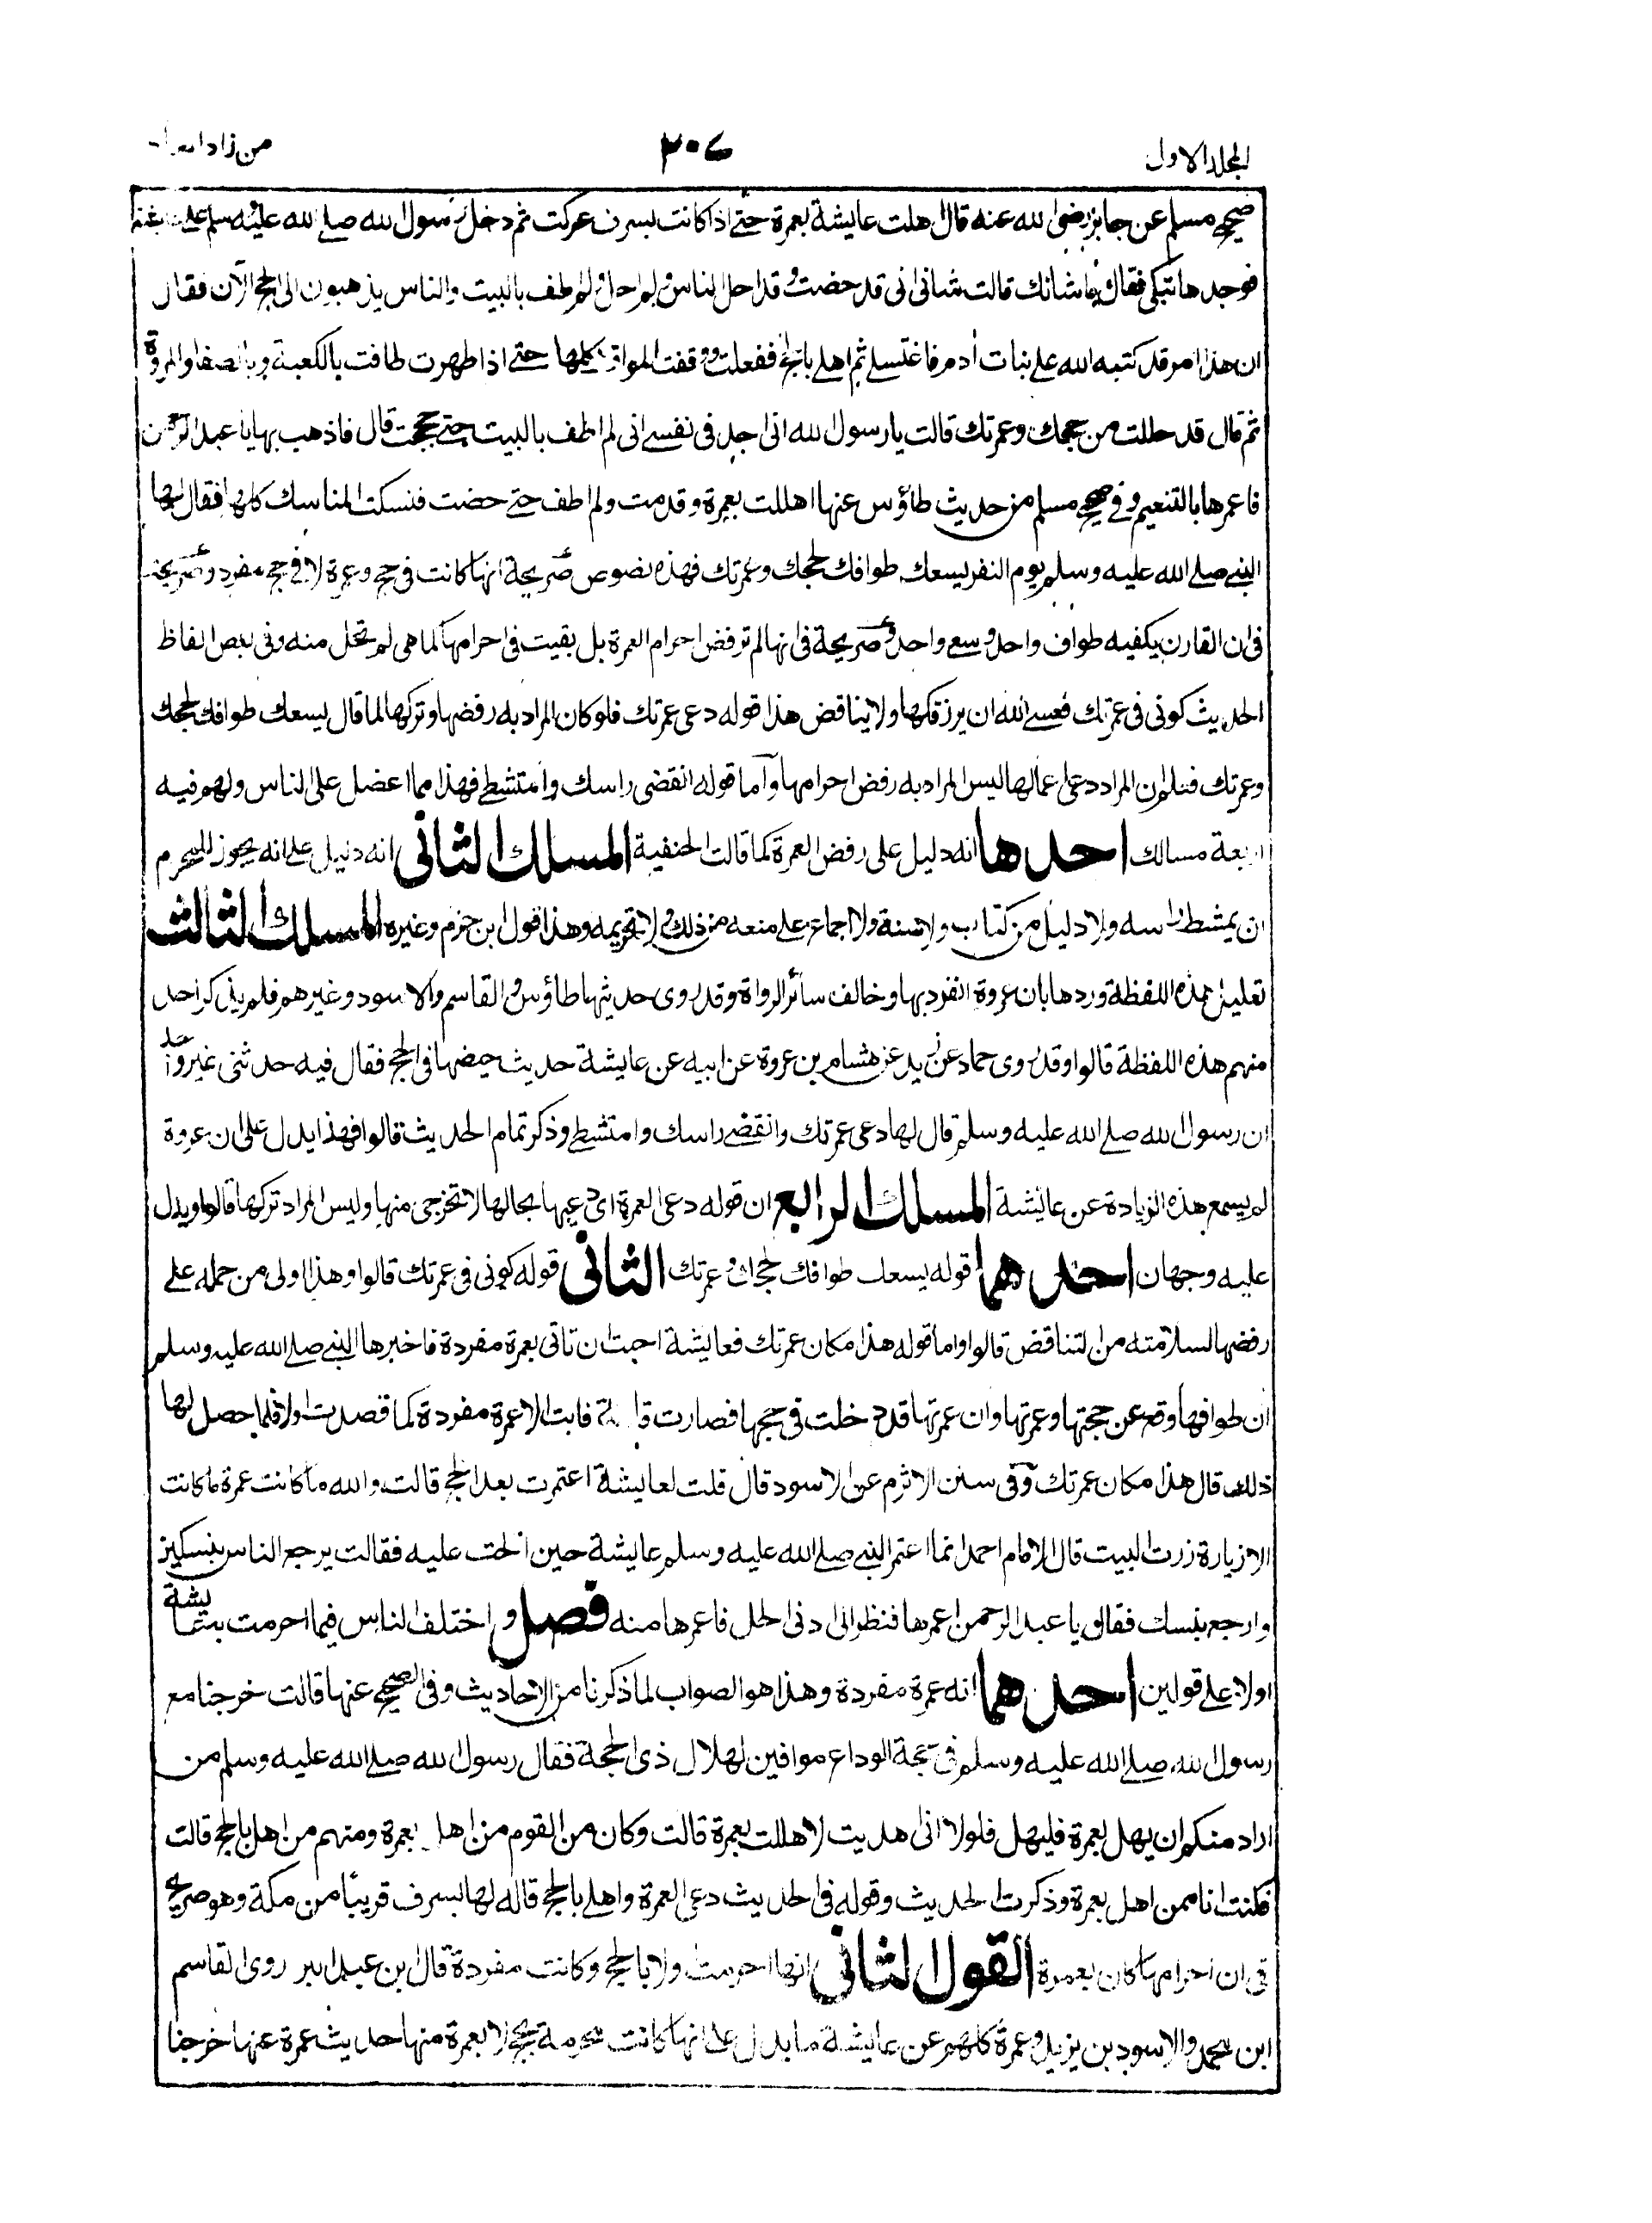 المجلد الاول
٢٠٧
من زاد
صحيح مسلم عن جابر رضى الله عنه قال اهلت عايشة بعمرة حتے اذا كانت بسرف عركت ثم دخل رسول الله صلے الله عليه وسلم على عايشة
فوجدها تبكى فقال ما شانك قالت شانى انى قد حضت وقد احل الناس ولم احل ولم اطف بالبيت والناس يذهبون الى الحج الآن فقال
ان هذا امر قد كتبه الله على بنات أدم فاغتسلے ثم اهلے بالحج ففعلت ووقفت المواقف كلها حتے اذا طهرت طافت بالكعبة وبالصفا والمروة
ثم قال قد حللت من حجك وعمرتك قالت يا رسول الله انى اجد فى نفسے انى لم اطف بالبيت حتے حججت قال فاذهب بها يا عبد الرحمن
فاعمرها بالتنعيم وفے صحيح مسلم من حديث طاؤس عنها اهللت بعمرة وقدمت ولم اطف حتے حضت فنسكت المناسك كلها فقال لها
النبے صلے الله عليه وسلم يوم النفر يسعك طوافك لحجك وعمرتك فهذه نصوص صريحة انها كانت فى حج وعمرة لا فى حج مفرد وصريحة
فى ان القارن يكفيه طواف واحد وسعے واحد وصريحة فى انها لم ترفض احرام العمرة بل بقيت فى احرامها كما هى لم تحل منه وفى بعض الفاظ
الحديث كونى فى عمرتك فعسے الله ان يرزقكها ولا يناقض هذا قوله دعى عمرتك فلو كان المراد به رفضها وتركها لما قال يسعك طوافك لحجك
وعمرتك فعلم ان المراد دعى اعمالها ليس المراد به رفض احرامها وآما قوله انقضى راسك وامتشطے فهذا مما اعضل على الناس ولهم فيه
اربعة مسالك احدها انه دليل على رفض العمرة كما قالت الحنفية المسلك الثانى انه دليل على انه يجوز للمحرم
ان يمشط راسه ولا دليل من كتاب ولا سنة ولا اجماع على منعه من ذلك ولا تحريمه وهذا قول ابن حزم وغيره المسلك الثالث
تعليل هذه اللفظة وردها بان عروة انفرد بها وخالف سائر الرواة وقد روى حديثها طاؤس والقاسم والاسود وغيرهم فلم يذكر احد
منهم هذه اللفظة قالوا وقد روى حماد عن زيد عن هشام بن عروة عن ابيه عن عايشة حديث حيضها فى الحج فقال فيه حدثنى غير واحد
ان رسول الله صلے الله عليه وسلم قال لها دعى عمرتك وانقضے راسك وامتشطے وذكر تمام الحديث قالوا فهذا يدل على ان عروة
لم يسمع هذه الزيادة عن عائشة المسلك الرابع ان قوله دعى العمرة اى دعيها بحالها لا تخرجى منها وليس المراد تركها قالوا ويدل
عليه وجهان احدهما قوله يسعك طوافك لحجك وعمرتك الثانى قوله كونى فى عمرتك قالوا وهذا اولى من حمله على
رفضها لسلامته من التناقض قالوا واما قوله هذا مكان عمرتك فعايشة احبت ان تاتى بعمرة مفردة فاخبرها النبے صلے الله عليه وسلم
ان طوافها وقع عن حجتها وعمرتها وان عمرتها قد دخلت فى حجها فصارت قارنة فابت الا عمرة مفردة كما قصدت اولا فلما حصل لها
ذلك قال هذا مكان عمرتك وفى سنن الاثرم عن الاسود قال قلت لعايشة اعتمرت بعد الحج قالت والله ما كانت عمرة ما كانت
الا زيارة زرت البيت قال الامام احمد انما اعتمر النبے صلے الله عليه وسلم عايشة حين الحت عليه فقالت يرجع الناس بنسكين
وارجع بنسك فقال يا عبد الرحمن اعمرها فنظر الى ادنى الحل فاعمرها منه فصل واختلف الناس فيما احرمت به عايشة
اولا على قولين احدهما انه عمرة مفردة وهذا هو الصواب لما ذكرنا من الاحاديث وفى الصحيح عنها قالت خرجنا مع
رسول الله صلے الله عليه وسلم فى حجة الوداع موافين لهلال ذى الحجة فقال رسول الله صلے الله عليه وسلم من
اراد منكم ان يهل بعمرة فليهل فلولا انى اهديت لاهللت بعمرة قالت وكان من القوم من اهل بعمرة ومنهم من اهل بالحج قالت
فكنت انا ممن اهل بعمرة وذكرت الحديث وقوله فى الحديث دعى العمرة واهلے بالحج قاله لها بسرف قريبًا من مكة وهو صريح
فى ان احرامها كان بعمرة القول الثانى انها احرمت اولا بالحج وكانت مفردة قال ابن عبد البر روى القاسم
ابن محمد والاسود بن يزيد وعمرة كلهم عن عايشة ما يدل على انها كانت محرمة بحج لا بعمرة منها حديث عمرة عنها خرجنا